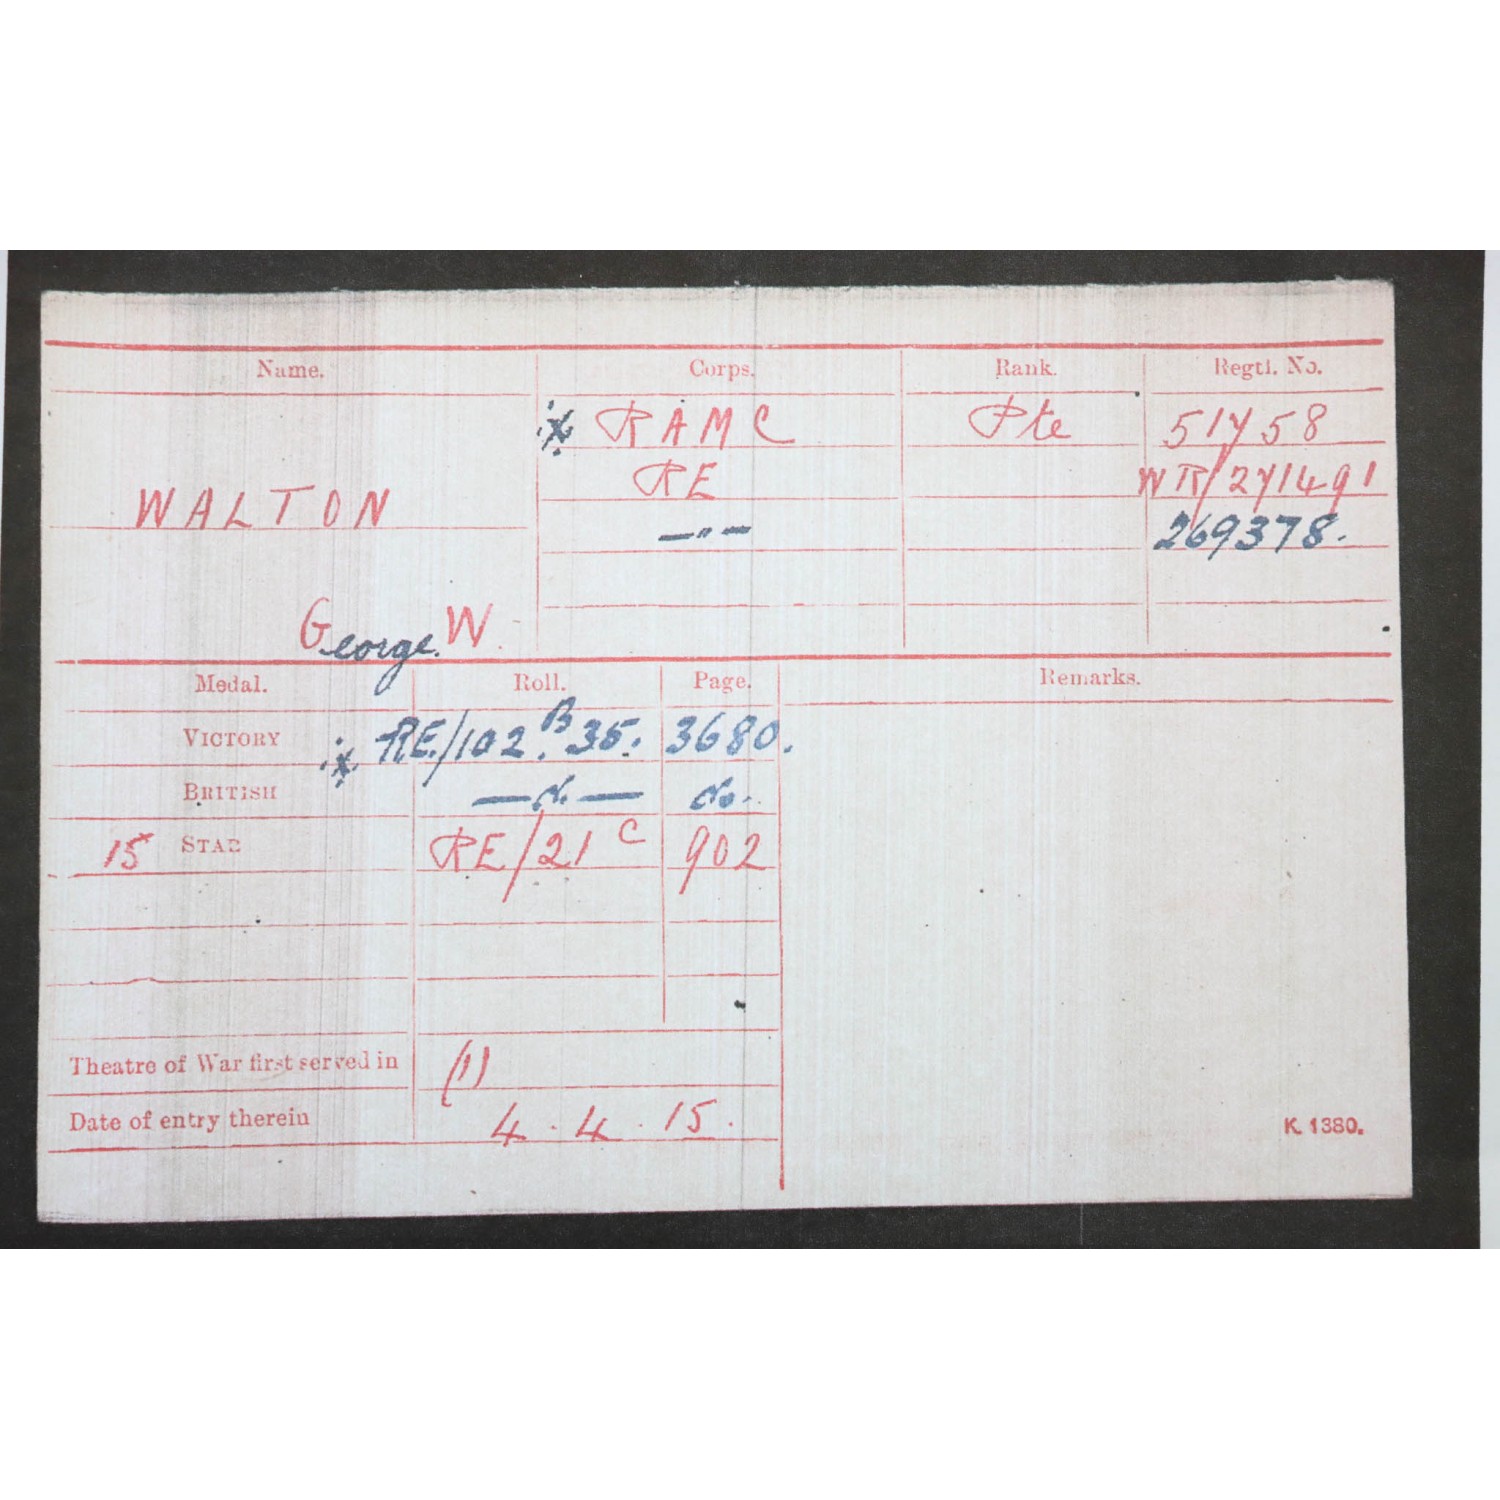 Name. Corps. Rank. Regtl. No.
RAMC Pte 51758
WALTON RE WR/271491
—"— 269378.
George. W.
Medal. Roll. Page. Remarks.
VICTORY RE/102 B 35. 3680.
BRITISH — do. — do.
15 STAR RE/21 C 902
Theatre of War first served in (1)
Date of entry therein 4.4.15.
K. 1380.